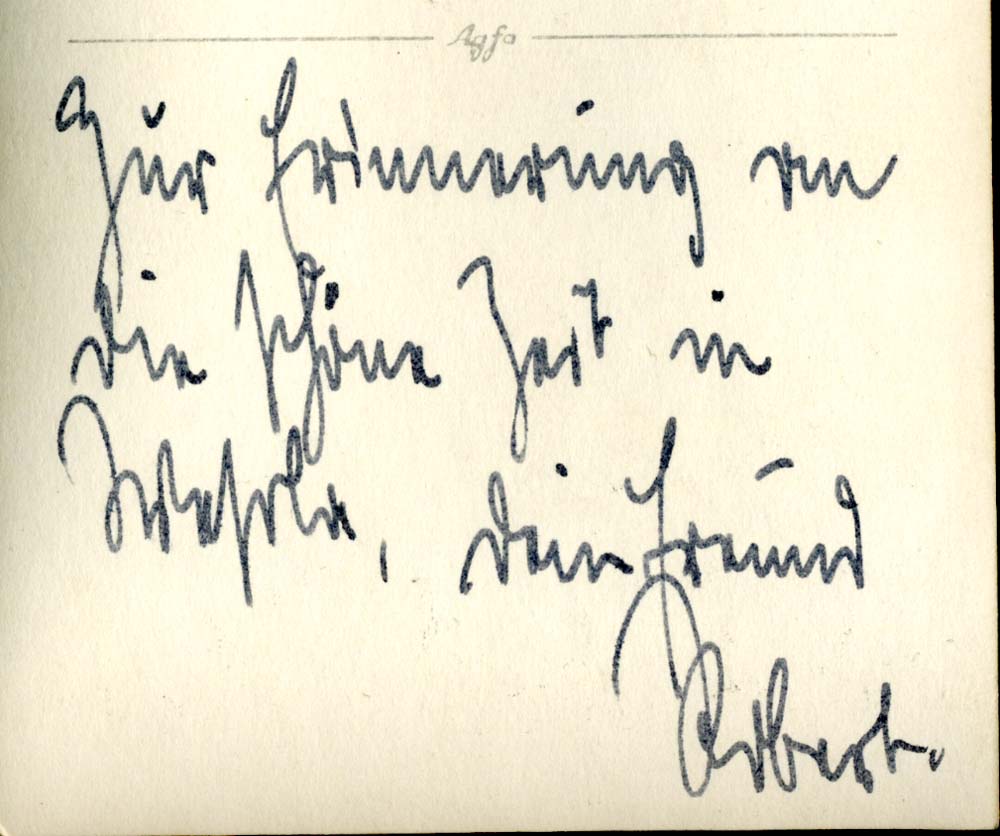 Agfa
Zur Erinnerung an
die schöne Zeit in
, dein Freund
Robert.